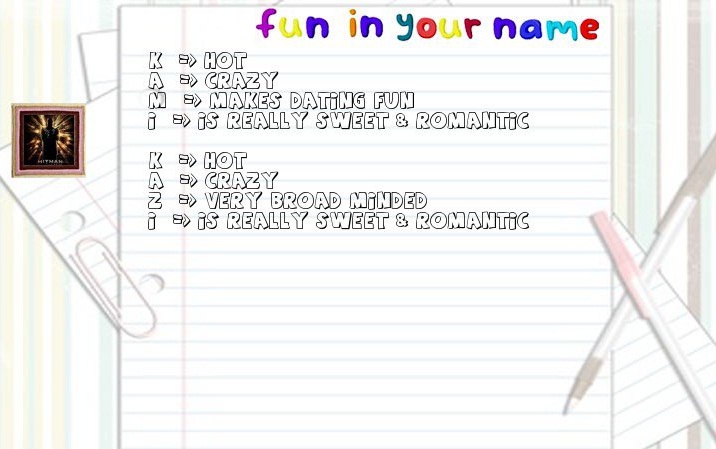 fun in your name
K => HOT
A => CRAZY
M => MAKES DATiNG FUN
i => iS REALLY SWEET & ROMANTiC
K => HOT
A => CRAZY
Z => VERY BROAD MiNDED
i => iS REALLY SWEET & ROMANTiC
HITMAN